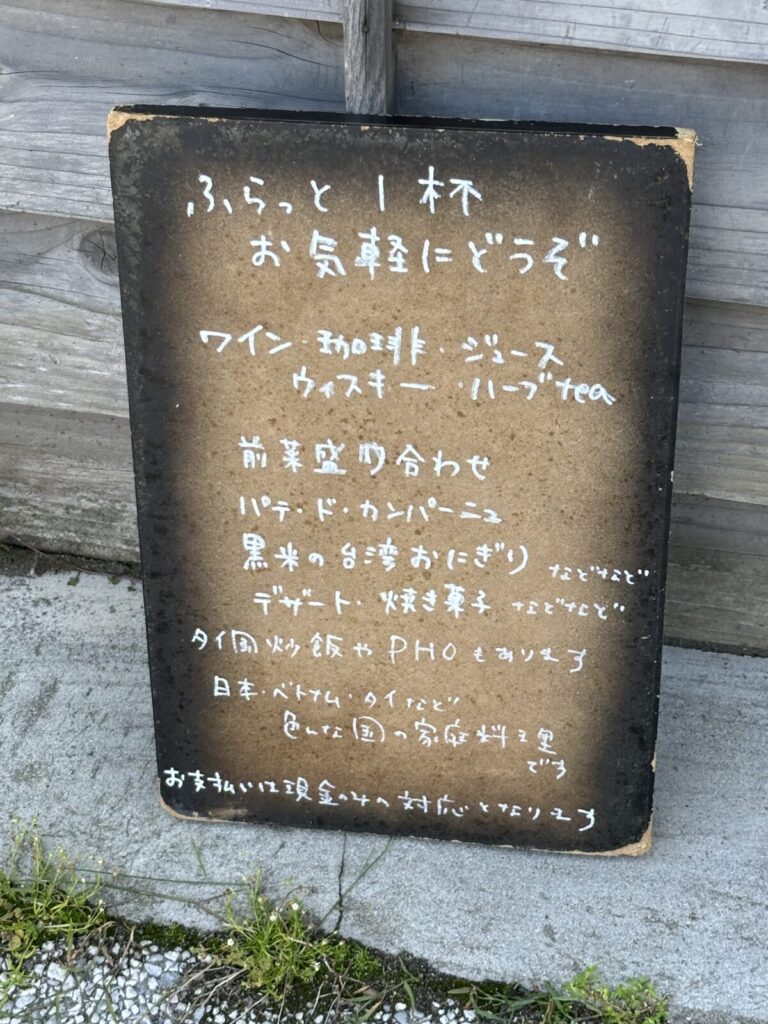 ふらっと1杯
お気軽にどうぞ
ワイン・珈琲・ジュース
ウィスキー・ハーブtea
前菜盛り合わせ
パテ・ド・カンパーニュ
黒米の台湾おにぎり などなど
デザート・焼き菓子 などなど
タイ国炒飯やPHOもあります
日本・ベトナム・タイなど
色んな国の家庭料理
です
お支払いは現金のみの対応となります